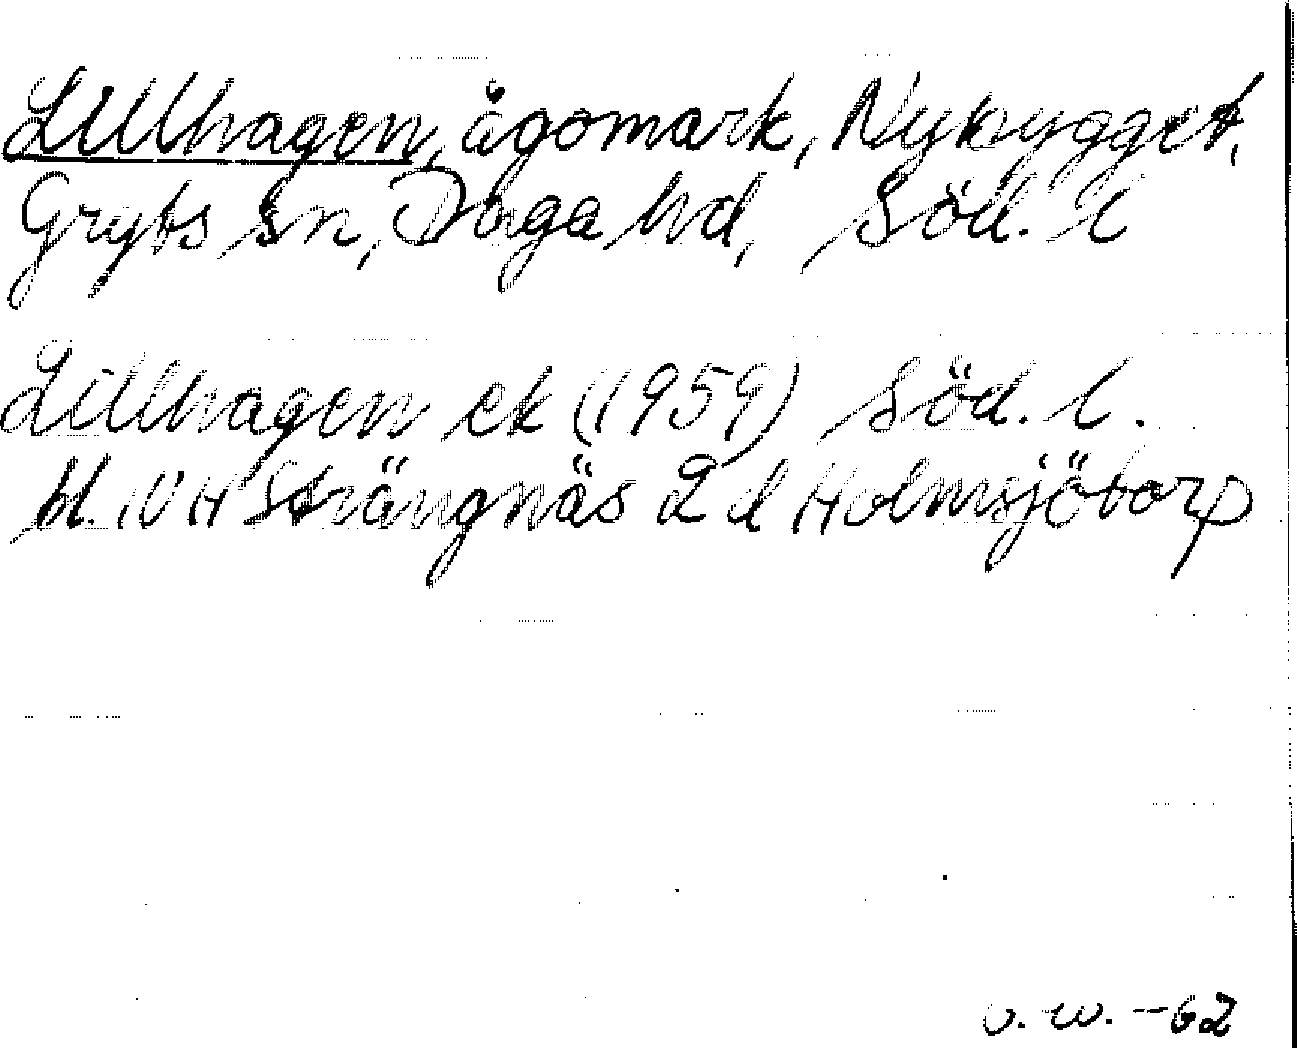 Lillhagen, ägomark, Nybygget,
Gryts sn, Daga hd, Söd. l
Lillhagen ek (1959) Söd. l.
bl. NH Strängnäs 2 d Holmsjötorp
v. w. -62